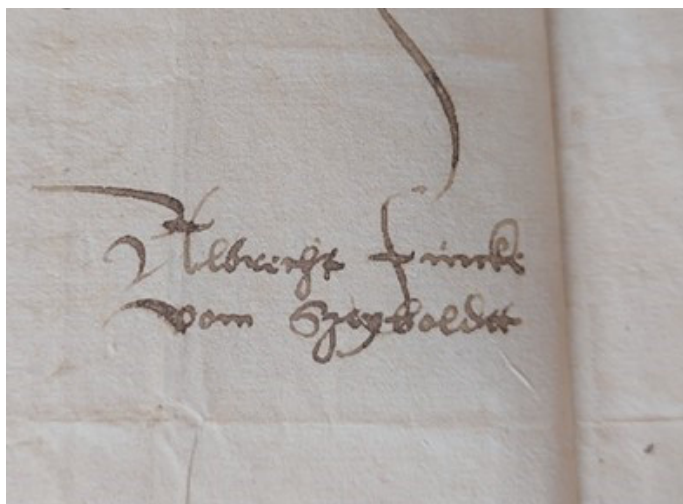 Albrecht Fincke
vom Szeyboldt